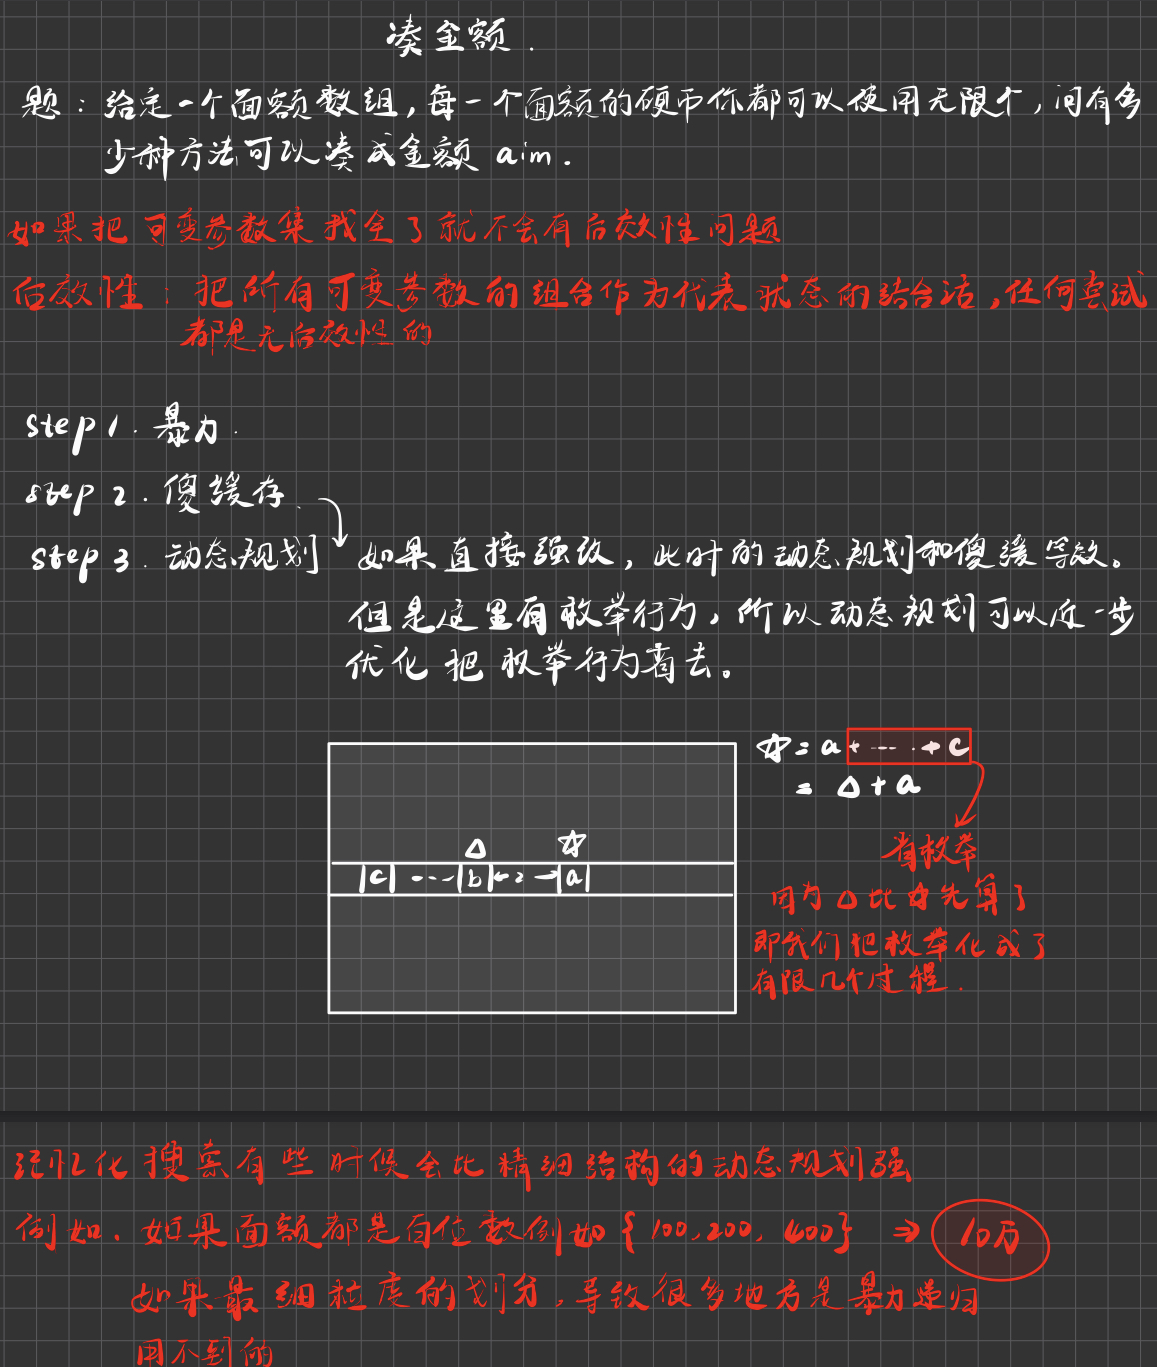 凑金额.
题：给定一个面额数组，每一个面额的硬币你都可以使用无限个，问有多
少种方法可以凑成金额 aim.
如果把可变参数集找全了就不会有后效性问题
后效性：把所有可变参数的组合作为代表状态的结合话，任何尝试
都是无后效性的
step 1. 暴力.
step 2. 傻缓存.
step 3. 动态规划
如果直接强改，此时的动态规划和傻缓等效。
但是这里有枚举行为，所以动态规划可以近一步
优化 把枚举行为省去。
☆ = a + ... + c
= △ + a
省枚举
△ ☆
|c| ...|b|← 2 →|a|
因为△比☆先算了
即我们把枚举化成了
有限几个过程.
记忆化搜索有些时候会比精细结构的动态规划强
例如. 如果面额都是百位数例如 {100, 200, 400} ⇒ 10万
如果最细粒度的划分，导致很多地方是暴力递归
用不到的